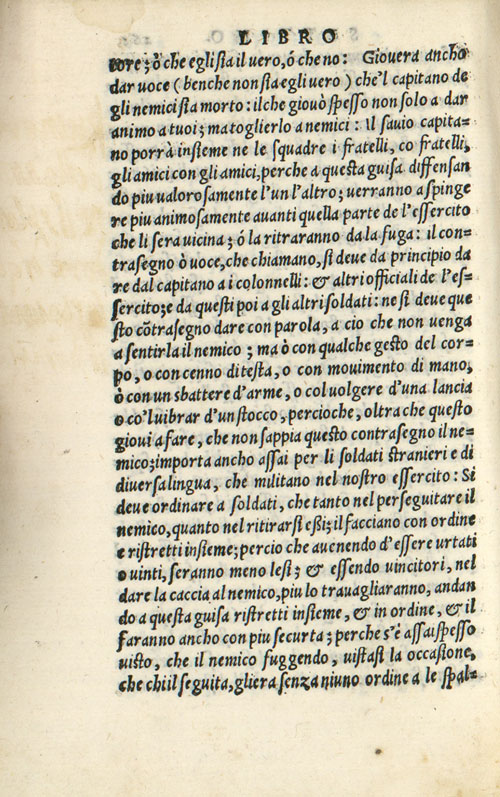 LIBRO
tore; ò che egli sia il vero, ó che no: Giovera ancho
dar voce (benche non sia egli vero) che'l capitano de
gli nemici sia morto: ilche giouò speßo non solo a dar
animo a tuoi; ma toglierlo a nemici: Il sauio capita=
no porrà insieme ne le squadre i fratelli, co fratelli,
gli amici con gli amici, perche a questa guisa diffensan
do piu valorosamente l'un l'altro; uerranno a spinge
re piu animosamente auanti quella parte de l'essercito
che li sera uicina; ó la ritraranno da la fuga: il con=
trasegno ò uoce, che chiamano, si deue da principio da
re dal capitano a i colonnelli: & altri officiali de l'es=
sercito; e da questi poi a gli altri soldati: ne si deue que
sto cõtrasegno dare con parola, a cio che non uenga
a sentirla il nemico; ma ò con qualche gesto del cor=
po, o con cenno di testa, o con mouimento di mano,
ò con un sbattere d'arme, o col uolgere d'una lancia
o co'l uibrar d'un stocco, percioche, oltra che questo
gioui a fare, che non sappia questo contrasegno il ne=
mico; importa ancho assai per li soldati stranieri e di
diuersa lingua, che militano nel nostro essercito: Si
deue ordinare a soldati, che tanto nel perseguitare il
nemico, quanto nel ritirarsi eßi; il facciano con ordine
e ristretti insieme; percio che auenendo d'essere urtati
o uinti, seranno meno lesi; & essendo uincitori, nel
dare la caccia al nemico, piu lo trauagliaranno, andan
do a questa guisa ristretti insieme, & in ordine, & il
faranno ancho con piu securta; perche s'è assai spesso
uisto, che il nemico fuggendo, uistasi la occasione,
che chi il seguita, gliera senza niuno ordine a le spal=